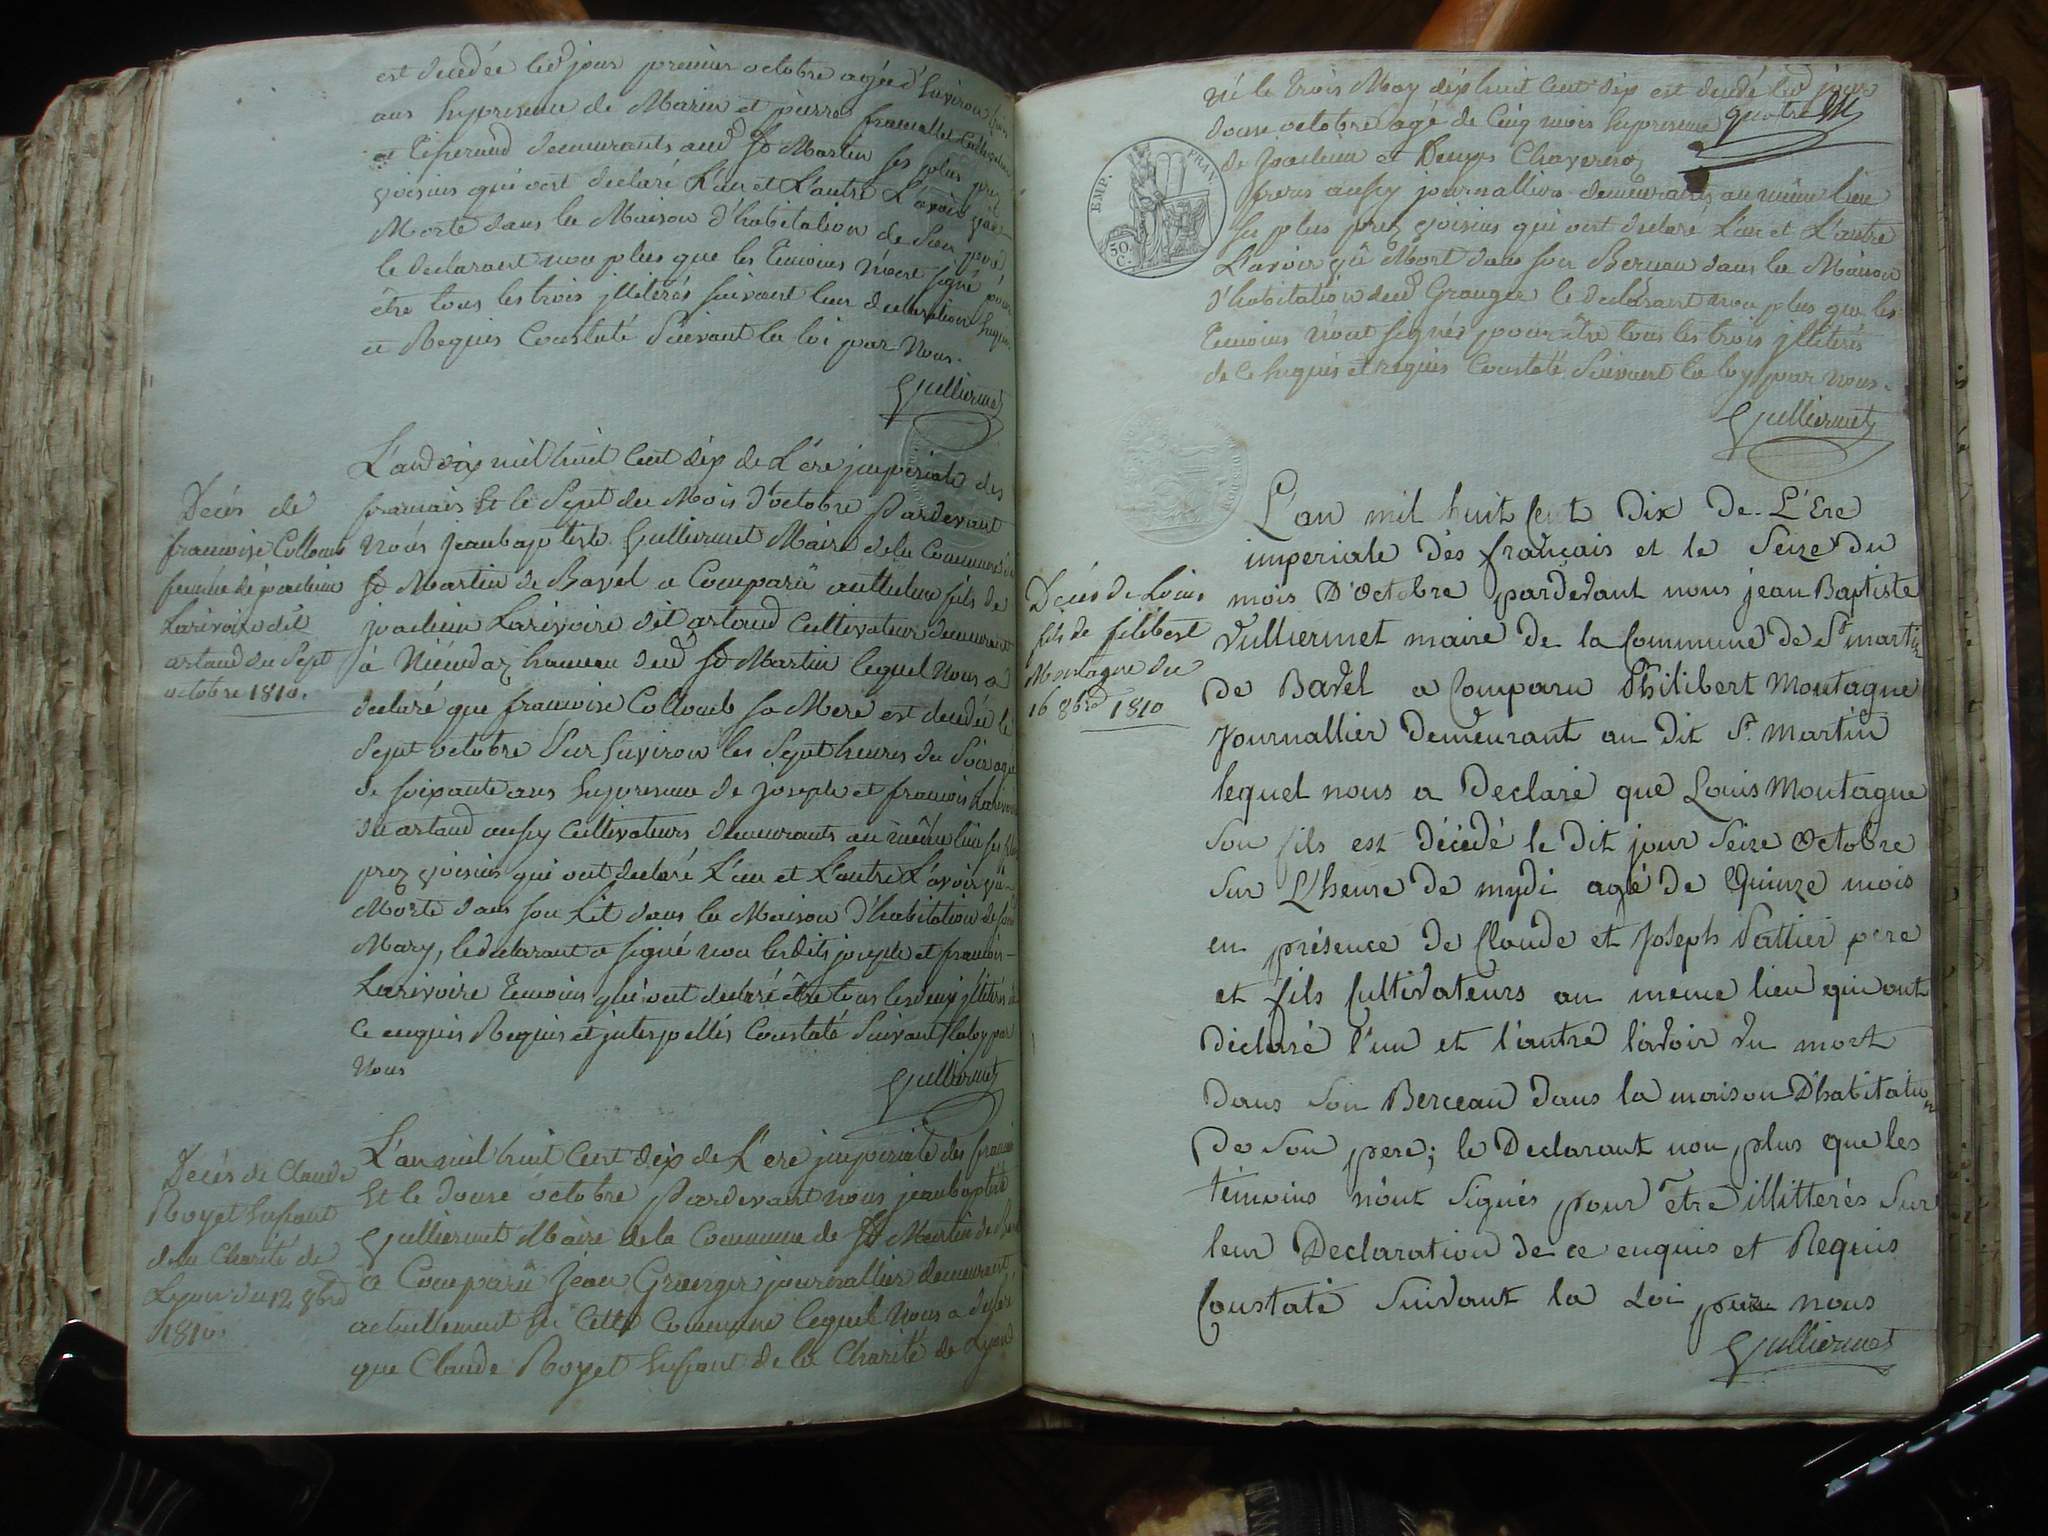 est decedée led jour premier octobre agée d'Environ trois
ans En presence de Marin et pierre framallet Cultivateurs
et Tisserand demeurants aud St Martin ses plus prez
voisins qui ont declaré L'un et L'autre L'avoir vue
Morte dans la Maison d'habitation de Son pere
le declarant non plus que les temoins n'ont signé pour
être tous les trois jlliterés suivant leur declaration Enquis
et Requis Constaté Suivant la loi par Nous.
Vulliermet
Decés de
francoise Collomb
femme de joachim
Larivoire dit
artaud du Sept
octobre 1810.
L'an mil huit Cent dix de L'ere jmperiale des
francais Et le Sept du Mois d'octobre Pardevant
Nous jeanbaptiste Vulliermet Maire dela Commune de
St Martin de Bavel a Comparû anthelme fils de
joachim Larivoire dit artaud Cultivateur demeurant
à hameau dud St Martin lequel Nous a
declaré que francoise Collomb sa Mere est decedée le
Sept octobre Sur Environ les Sept heures du Soir agée
de soixante ans En presence de joseph et francois Larivoire
dit artaud aussy Cultivateurs demeurants au même lieu ses plus
prez voisins qui ont declaré L'un et L'autre L'avoir vüe
Morte dans son Lit dans la Maison d'habitation de son
Mary, le declarant a signé non lesdits joseph et francois
Larivoire Temoins qui ont declaré être tous les deux jlliterés de
Ce enquis Requis et jnterpellés Constaté Suivant la loy par
Nous
Vulliermet
Decés de Claude
Royet Enfant
dela Charité de
Lyon du 12 8bre
1810.
L'an mil huit Cent dix de L'ere jmperiale des francais
Et le douse octobre Pardevant nous jeanbaptiste
Vulliermet Maire de la Commune de St Martin de Bavel
a Comparû Jean Granger journallier demeurant
actuellement En Cette Commune lequel Nous a declaré
que Claude Royet Enfant de la Charité de Lyon
né le trois May dix huit Cent dix est decedé led jour
douse octobre agé de Cinq mois En presence
de Joachim et Chaveroz
freres aussy journalliers demeurants au même lieu
Ses plus prez voisins qui ont declaré L'un et L'autre
L'avoir vû Mort dans son Berceau dans la Maison
d'habitation dud Granger le declarant non plus que les
Temoins n'ont signés pour être tous les trois jlliterés
de Ce Enquis et requis Constaté Suivant la loy par nous.
Vulliermet
EMP. FRAN.
50 C.
Decés de Louis
fils de filibert
Montagne du
16 8bre 1810
L'an mil huit Cent Dix De L'Ere
imperiale des français et le Seize du
mois D'octobre pardevant nous jean Baptiste
Vulliermet maire De la Commune De St martin
De Bavel a Comparu Philibert Montagne
Journallier Demeurant au Dit St Martin
lequel nous a Declaré que Louis Montagne
Son fils est décédé le Dit jour Seize Octobre
Sur L'heure De mydi agé De Quinze mois
en présence De Claude et Joseph Vattier pere
et fils Cultivateurs au meme lieu qui ont
Déclaré l'un et l'autre l'avoir vu mort
Dans Son Berceau Dans la maison D'habitation
De Son pere; le Declarant non plus que les
témoins n'ont Signés pour être illitterés Sur
leur Declaration De ce enquis et Requis
Constaté Suivant la Loi par nous
Vulliermet